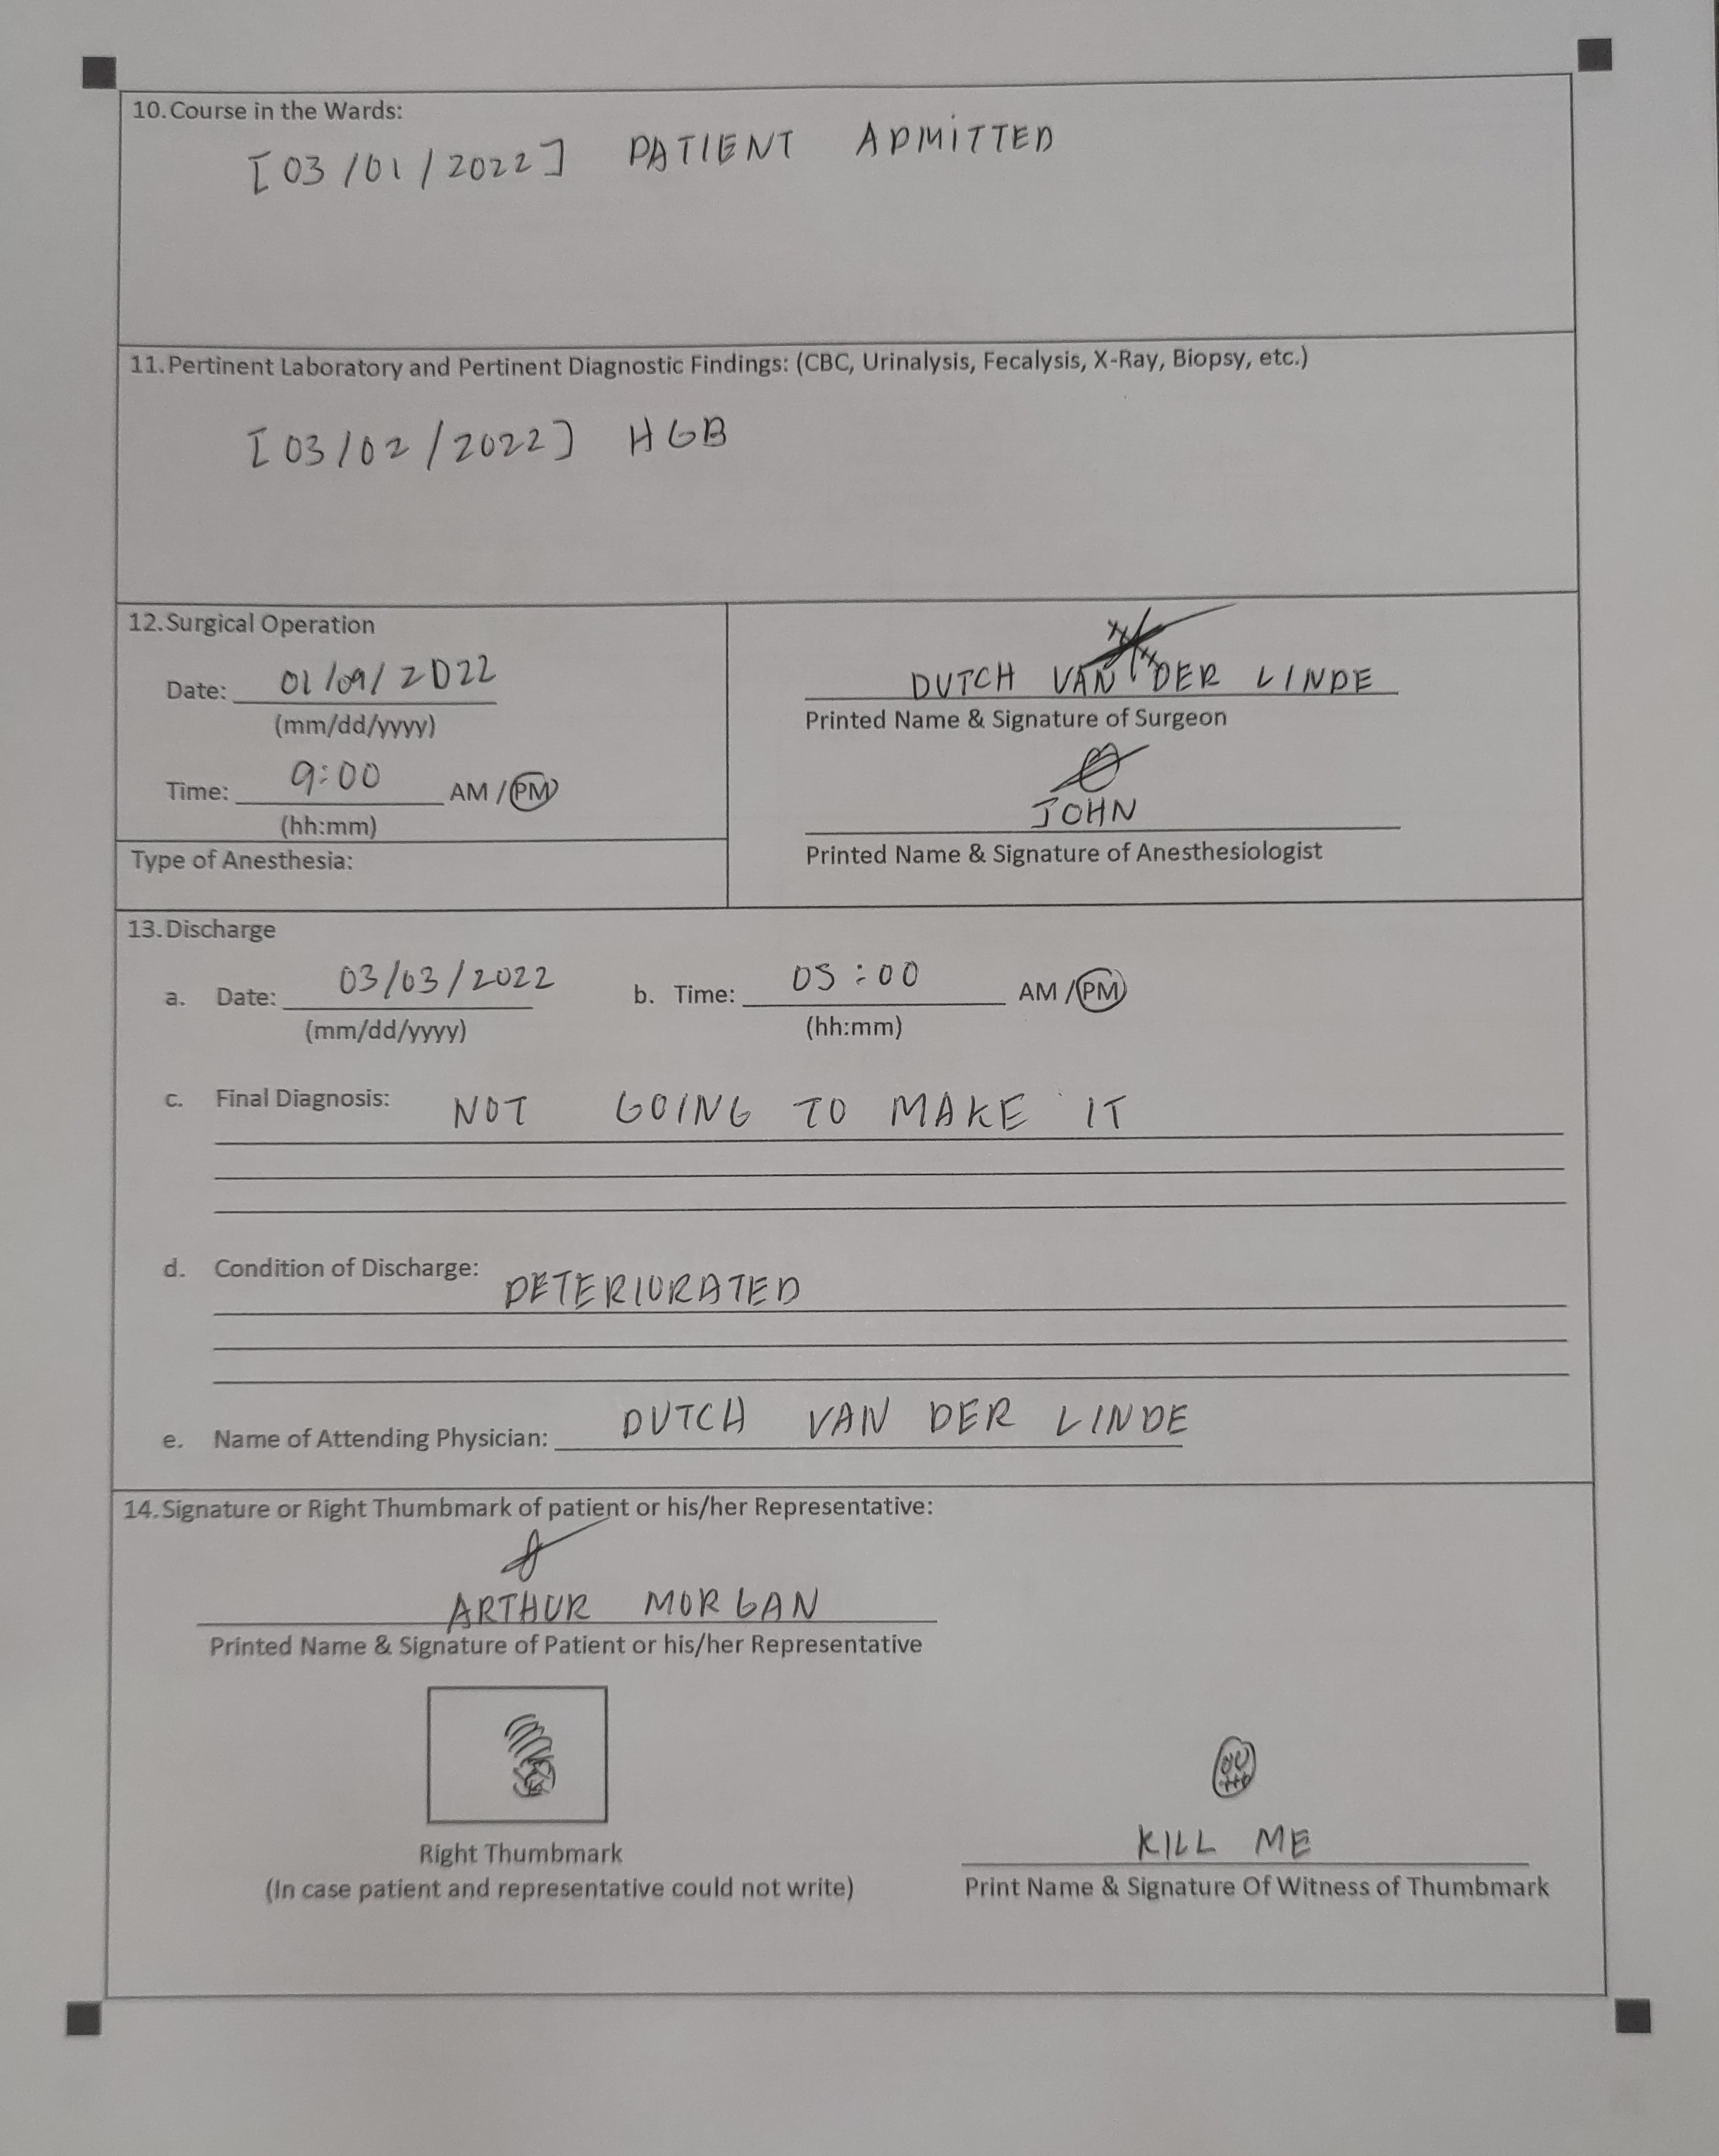 10. Course in the Wards:
[03/01/2022] PATIENT ADMITTED
11. Pertinent Laboratory and Pertinent Diagnostic Findings: (CBC, Urinalysis, Fecalysis, X-Ray, Biopsy, etc.)
[03/02/2022] HGB
12. Surgical Operation
Date: 01/09/2022
(mm/dd/yyyy)
Time: 9:00 AM / PM
(hh:mm)
Type of Anesthesia:
DUTCH VAN DER LINDE
Printed Name & Signature of Surgeon
JOHN
Printed Name & Signature of Anesthesiologist
13. Discharge
a. Date: 03/03/2022 b. Time: 05:00 AM / PM
(mm/dd/yyyy) (hh:mm)
c. Final Diagnosis: NOT GOING TO MAKE IT
d. Condition of Discharge: DETERIORATED
e. Name of Attending Physician: DUTCH VAN DER LINDE
14. Signature or Right Thumbmark of patient or his/her Representative:
ARTHUR MORGAN
Printed Name & Signature of Patient or his/her Representative
Right Thumbmark
(In case patient and representative could not write)
KILL ME
Print Name & Signature Of Witness of Thumbmark